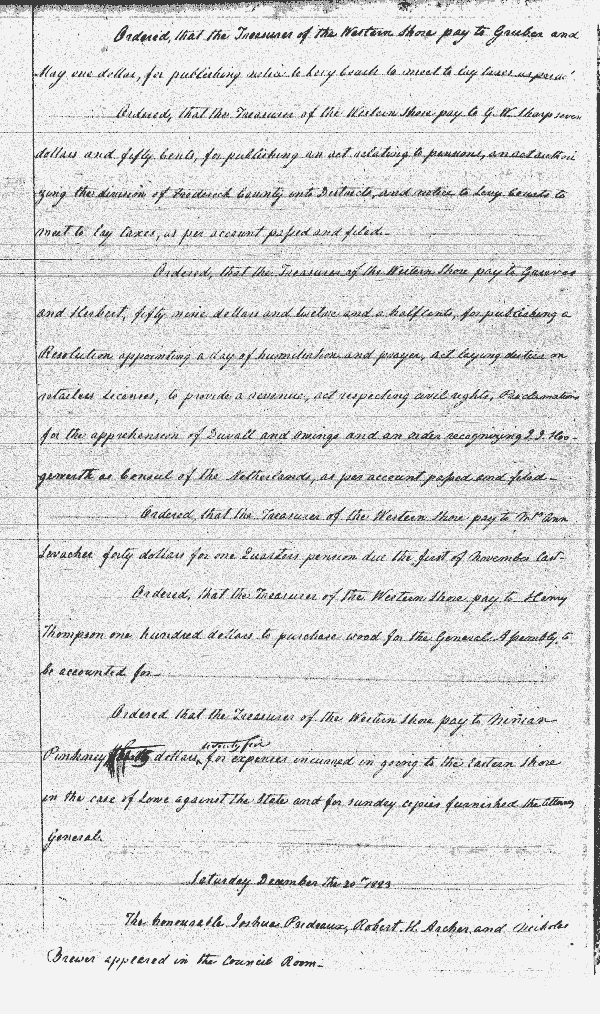 Ordered, that the Treasurer of the Western Shore pay to Grieber and
May one dollar, for publishing notice to levy Courts to meet to lay taxes as per ac't
Ordered, that the Treasurer of the Western Shore pay to G. W. Sharp seven
dollars and fifty Cents, for publishing an act relating to pensions, an act authori
zing the division of Frederick County into Districts, and notice to Levy Courts to
meet to lay taxes, as per account passed and filed.
Ordered, that the Treasurer of the Western Shore pay to
and Herbert, fifty nine dollars and twelve and a half Cents, for publishing a
Resolution appointing a day of humiliation and prayer, act laying duties on
retailers licenses, to provide a revenue, act respecting civil rights, Proclamations
for the apprehension of Duvall and Owings and an order recognizing
as Consul of the Netherlands, as per account passed and filed
Ordered, that the Treasurer of the Western Shore pay to Mrs Ann
Levacher forty dollars for one Quarters pension due the first of November last
Ordered, that the Treasurer of the Western Shore pay to Henry
Thompson one hundred dollars to purchase wood for the General Assembly, to
be accounted for
Ordered that the Treasurer of the Western Shore pay to Ninian
Pinkney dollars, twenty five for expenses incurred in going to the Eastern Shore
in the case of Lowe against the State and for sunday copies furnished the Attorney
General.
Saturday December the 20th 1823
The honourable Joshua Prideaux, Robert H. Archer and Nicholas
Brewer appeared in the Council Room